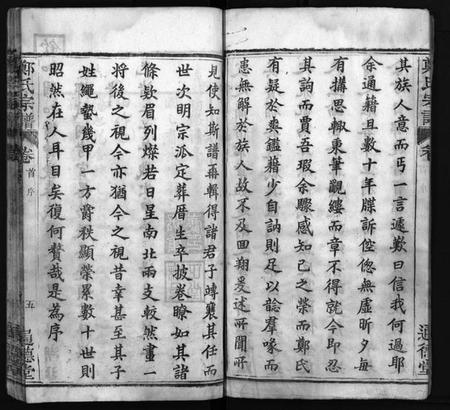 鄭氏宗譜 卷
其族人意而丐一言遽歎曰信我何過耶
余通籍且數十年牒訴倥偬無虛昕夕每
有搆思輒東筆覼縷而章不得就今即忍
其詢而賈吾瑕余驟感知己之榮而鄭氏
有疑於奕鑑藉少自訥則足以諗羣喙而
患無解於族人故不及回翔爰述所聞所
見使知斯譜再輯得諸君子竱襄其任而
世次明宗派定葬厝生卒披卷瞭如其諸
條欵眉列燦若日星南北兩支較然畫一
將後之視今亦猶今之視昔幸甚至其子
姓繩蟄幾甲一方爵秩顯榮累數十世則
昭然在人耳目矣復何贅哉是為序
鄭氏宗譜 卷 首序 五 通德堂
通德堂